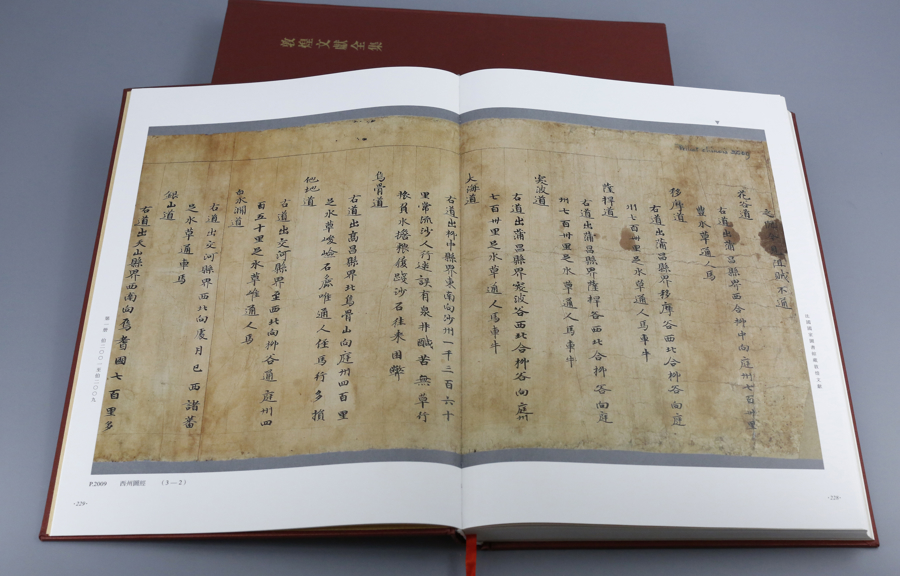 敦煌文獻全集
法國國家圖書館藏敦煌文獻
道賊不通
花谷道
右道出蒲昌縣界西合柳中向庭州七百卅里
豐水草通人馬
移摩道
右道出蒲昌縣界移摩谷西北合柳谷向庭
州七百卌里足水草通人馬車牛
薩捍道
右道出蒲昌縣界薩捍谷西北合柳谷向庭
州七百卅里足水草通人馬車牛
突波道
右道出蒲昌縣界突波谷西北合柳谷向庭州
七百卅里足水草通人馬車牛
大海道
右道出柳中縣界東南向沙州一千三百六十
里常流沙人行迷誤有泉井鹹苦無草行
旅負水擔糧履踐沙石往來困弊
烏骨道
右道出高昌縣界北烏骨山向庭州四百里
足水草峻嶮石麁唯通人徑馬行多損
他地道
右道出交河縣界至西北向柳谷通庭州四
百五十里足水草唯通人馬
白水澗道
右道出交河縣界西北向處月已西諸蕃
足水草通車馬
銀山道
右道出天山縣界西南向焉耆國七百里多
第一册 伯二〇〇一至伯二〇〇九
P.2009 西州圖經 (3—2)
·229·
·228·